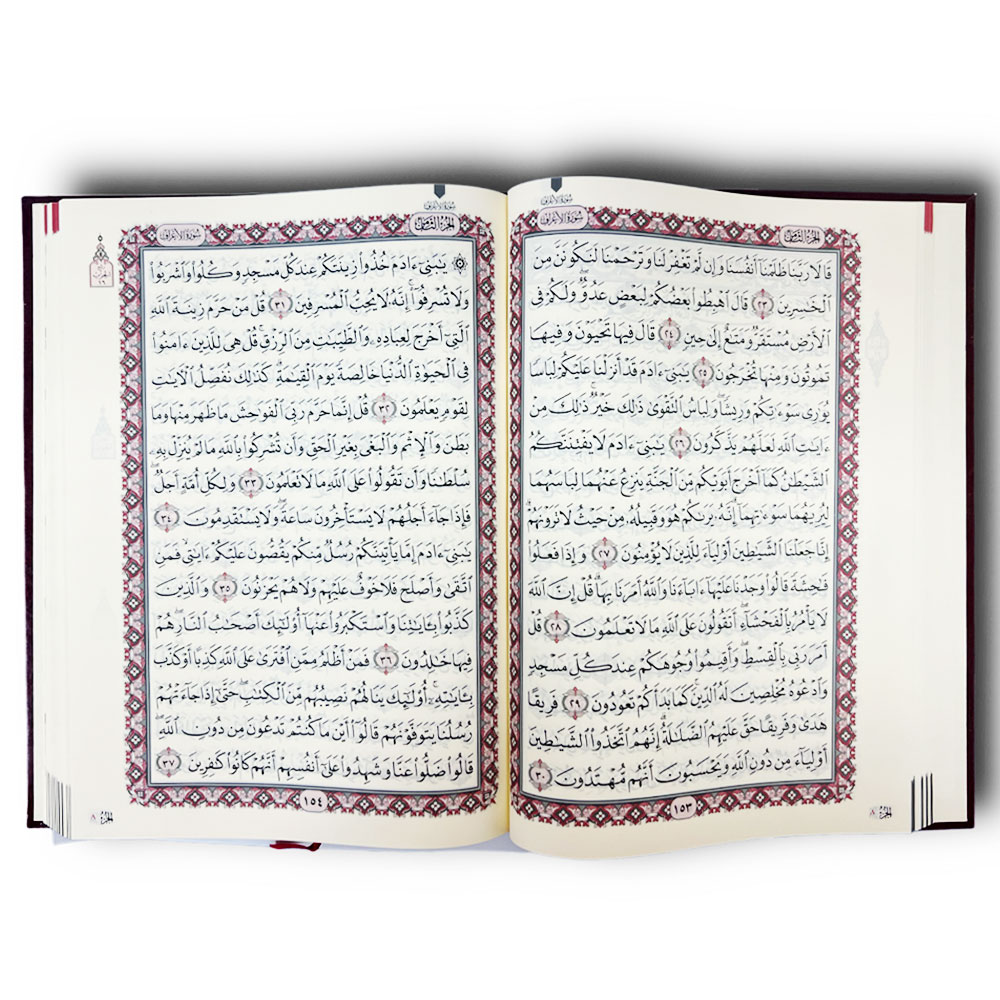 سورة الأعراف
سورة الأعراف
الجزء الثامن
قَالَا رَبَّنَا ظَلَمْنَآ أَنفُسَنَا وَإِن لَّمْ تَغْفِرْ لَنَا وَتَرْحَمْنَا لَنَكُونَنَّ مِنَ
ٱلْخَٰسِرِينَ ٢٣ قَالَ ٱهْبِطُوا۟ بَعْضُكُمْ لِبَعْضٍ عَدُوٌّ ۖ وَلَكُمْ فِى
ٱلْأَرْضِ مُسْتَقَرٌّ وَمَتَٰعٌ إِلَىٰ حِينٍ ٢٤ قَالَ فِيهَا تَحْيَوْنَ وَفِيهَا
تَمُوتُونَ وَمِنْهَا تُخْرَجُونَ ٢٥ يَٰبَنِىٓ ءَادَمَ قَدْ أَنزَلْنَا عَلَيْكُمْ لِبَاسًا
يُوَٰرِى سَوْءَٰتِكُمْ وَرِيشًا ۖ وَلِبَاسُ ٱلتَّقْوَىٰ ذَٰلِكَ خَيْرٌ ۚ ذَٰلِكَ مِنْ
ءَايَٰتِ ٱللَّهِ لَعَلَّهُمْ يَذَّكَّرُونَ ٢٦ يَٰبَنِىٓ ءَادَمَ لَا يَفْتِنَنَّكُمُ
ٱلشَّيْطَٰنُ كَمَآ أَخْرَجَ أَبَوَيْكُم مِّنَ ٱلْجَنَّةِ يَنزِعُ عَنْهُمَا لِبَاسَهُمَا
لِيُرِيَهُمَا سَوْءَٰتِهِمَآ ۗ إِنَّهُۥ يَرَىٰكُمْ هُوَ وَقَبِيلُهُۥ مِنْ حَيْثُ لَا تَرَوْنَهُمْ ۗ
إِنَّا جَعَلْنَا ٱلشَّيَٰطِينَ أَوْلِيَآءَ لِلَّذِينَ لَا يُؤْمِنُونَ ٢٧ وَإِذَا فَعَلُوا۟
فَٰحِشَةً قَالُوا۟ وَجَدْنَا عَلَيْهَآ ءَابَآءَنَا وَٱللَّهُ أَمَرَنَا بِهَا ۗ قُلْ إِنَّ ٱللَّهَ
لَا يَأْمُرُ بِٱلْفَحْشَآءِ ۖ أَتَقُولُونَ عَلَى ٱللَّهِ مَا لَا تَعْلَمُونَ ٢٨ قُلْ
أَمَرَ رَبِّى بِٱلْقِسْطِ ۖ وَأَقِيمُوا۟ وُجُوهَكُمْ عِندَ كُلِّ مَسْجِدٍ
وَٱدْعُوهُ مُخْلِصِينَ لَهُ ٱلدِّينَ ۚ كَمَا بَدَأَكُمْ تَعُودُونَ ٢٩ فَرِيقًا
هَدَىٰ وَفَرِيقًا حَقَّ عَلَيْهِمُ ٱلضَّلَٰلَةُ ۗ إِنَّهُمُ ٱتَّخَذُوا۟ ٱلشَّيَٰطِينَ
أَوْلِيَآءَ مِن دُونِ ٱللَّهِ وَيَحْسَبُونَ أَنَّهُم مُّهْتَدُونَ ٣٠
١٥٣
الجزء ٨
سورة الأعراف
الجزء الثامن
سورة الأعراف
۞ يَٰبَنِىٓ ءَادَمَ خُذُوا۟ زِينَتَكُمْ عِندَ كُلِّ مَسْجِدٍ وَكُلُوا۟ وَٱشْرَبُوا۟
وَلَا تُسْرِفُوٓا۟ ۚ إِنَّهُۥ لَا يُحِبُّ ٱلْمُسْرِفِينَ ٣١ قُلْ مَنْ حَرَّمَ زِينَةَ ٱللَّهِ
ٱلَّتِىٓ أَخْرَجَ لِعِبَادِهِۦ وَٱلطَّيِّبَٰتِ مِنَ ٱلرِّزْقِ ۚ قُلْ هِىَ لِلَّذِينَ ءَامَنُوا۟
فِى ٱلْحَيَوٰةِ ٱلدُّنْيَا خَالِصَةً يَوْمَ ٱلْقِيَٰمَةِ ۗ كَذَٰلِكَ نُفَصِّلُ ٱلْءَايَٰتِ
لِقَوْمٍ يَعْلَمُونَ ٣٢ قُلْ إِنَّمَا حَرَّمَ رَبِّىَ ٱلْفَوَٰحِشَ مَا ظَهَرَ مِنْهَا وَمَا
بَطَنَ وَٱلْإِثْمَ وَٱلْبَغْىَ بِغَيْرِ ٱلْحَقِّ وَأَن تُشْرِكُوا۟ بِٱللَّهِ مَا لَمْ يُنَزِّلْ بِهِۦ
سُلْطَٰنًا وَأَن تَقُولُوا۟ عَلَى ٱللَّهِ مَا لَا تَعْلَمُونَ ٣٣ وَلِكُلِّ أُمَّةٍ أَجَلٌ ۖ
فَإِذَا جَآءَ أَجَلُهُمْ لَا يَسْتَأْخِرُونَ سَاعَةً ۖ وَلَا يَسْتَقْدِمُونَ ٣٤
يَٰبَنِىٓ ءَادَمَ إِمَّا يَأْتِيَنَّكُمْ رُسُلٌ مِّنكُمْ يَقُصُّونَ عَلَيْكُمْ ءَايَٰتِى ۙ فَمَنِ
ٱتَّقَىٰ وَأَصْلَحَ فَلَا خَوْفٌ عَلَيْهِمْ وَلَا هُمْ يَحْزَنُونَ ٣٥ وَٱلَّذِينَ
كَذَّبُوا۟ بِـَٔايَٰتِنَا وَٱسْتَكْبَرُوا۟ عَنْهَآ أُو۟لَٰٓئِكَ أَصْحَٰبُ ٱلنَّارِ ۖ هُمْ
فِيهَا خَٰلِدُونَ ٣٦ فَمَنْ أَظْلَمُ مِمَّنِ ٱفْتَرَىٰ عَلَى ٱللَّهِ كَذِبًا أَوْ كَذَّبَ
بِـَٔايَٰتِهِۦٓ ۚ أُو۟لَٰٓئِكَ يَنَالُهُمْ نَصِيبُهُم مِّنَ ٱلْكِتَٰبِ ۖ حَتَّىٰٓ إِذَا جَآءَتْهُمْ
رُسُلُنَا يَتَوَفَّوْنَهُمْ قَالُوٓا۟ أَيْنَ مَا كُنتُمْ تَدْعُونَ مِن دُونِ ٱللَّهِ ۖ
قَالُوا۟ ضَلُّوا۟ عَنَّا وَشَهِدُوا۟ عَلَىٰٓ أَنفُسِهِمْ أَنَّهُمْ كَانُوا۟ كَٰفِرِينَ ٣٧
١٥٤
الجزء ٨